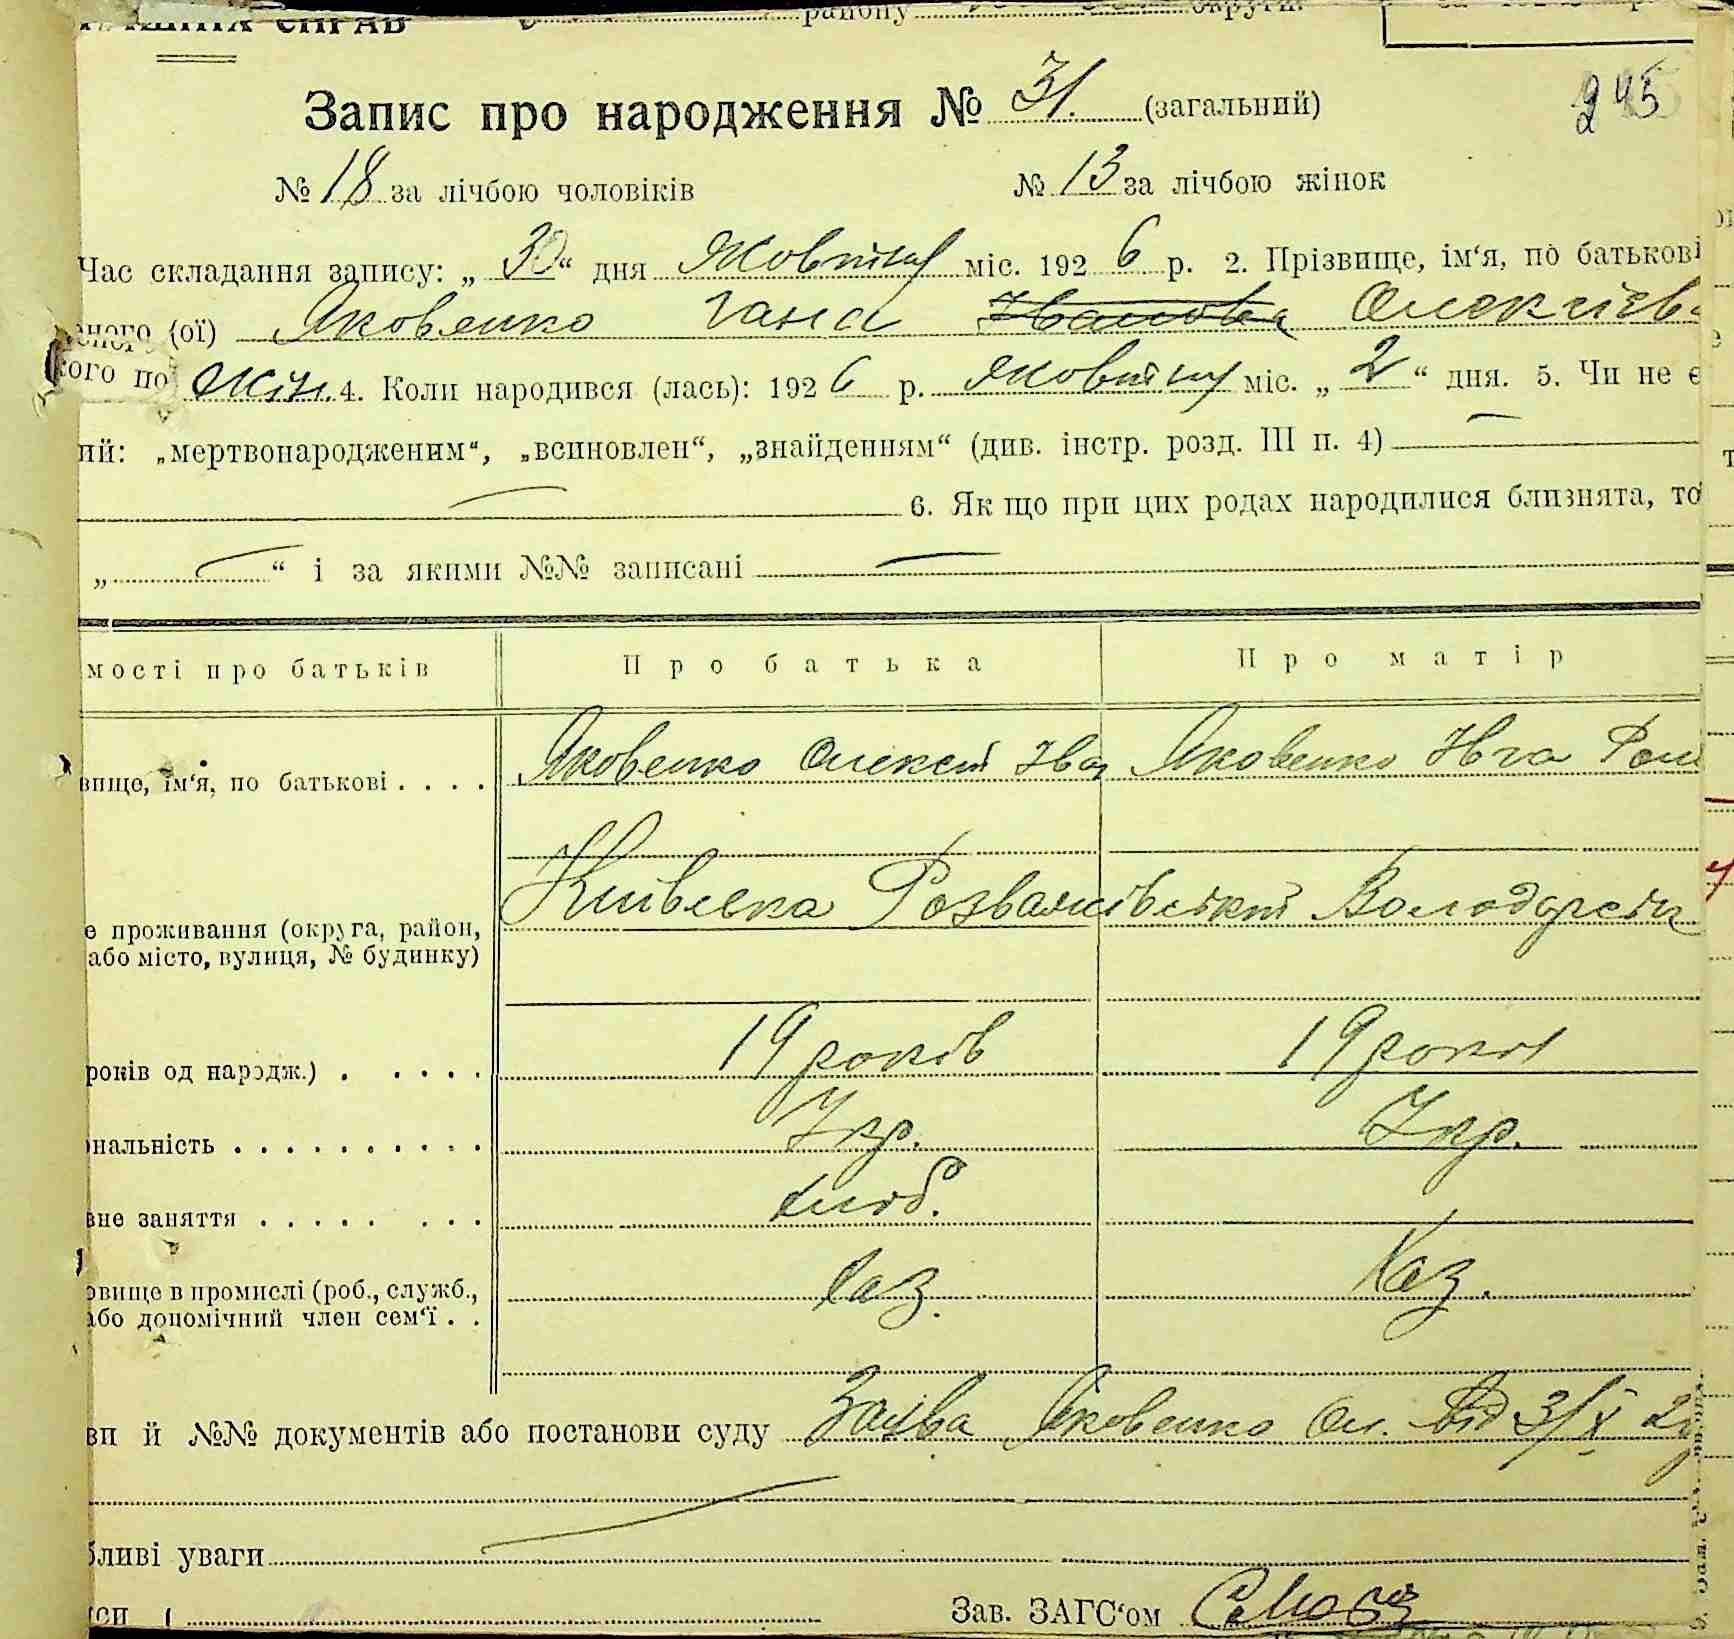 районну округи.
Запис про народження № 31. (загальний) 245
№ 18 за лічбою чоловіків № 13 за лічбою жінок
Час складання запису: „ 30 “ дня Жовтня міс. 192 6 р. 2. Прізвище, ім‘я, по батькові
еного (ої) Яковенко Гана Іванова Олексієв
кого по Жін. 4. Коли народився (лась): 192 6 р. Жовтня міс. „ 2 “ дня. 5. Чи не є
ий: „мертвонародженим“, „всиновлен“, „знайденням“ (див. інстр. розд. III п. 4)
6. Як що при цих родах народилися близнята, то
„ “ і за якими №№ записані
мості про батьків Про батька Про матір
вище, ім‘я, по батькові . . . . Яковенко Олексій Іван Яковенко Ром
е проживання (округа, район, Київська Розважівський Володарськ
або місто, вулиця, № будинку)
років од народж.) . . . . . 19 років 19 років
нальність . . . . . . . . . . Укр. Укр.
вне заняття . . . . . . . . хліб.
овище в промислі (роб., служб., хаз. хаз.
або допомічний член сем‘ї . .
ви й №№ документів або постанови суду Заява Яковенко Ол. від 3/X 26
бливі уваги
Зав. ЗАГС‘ом